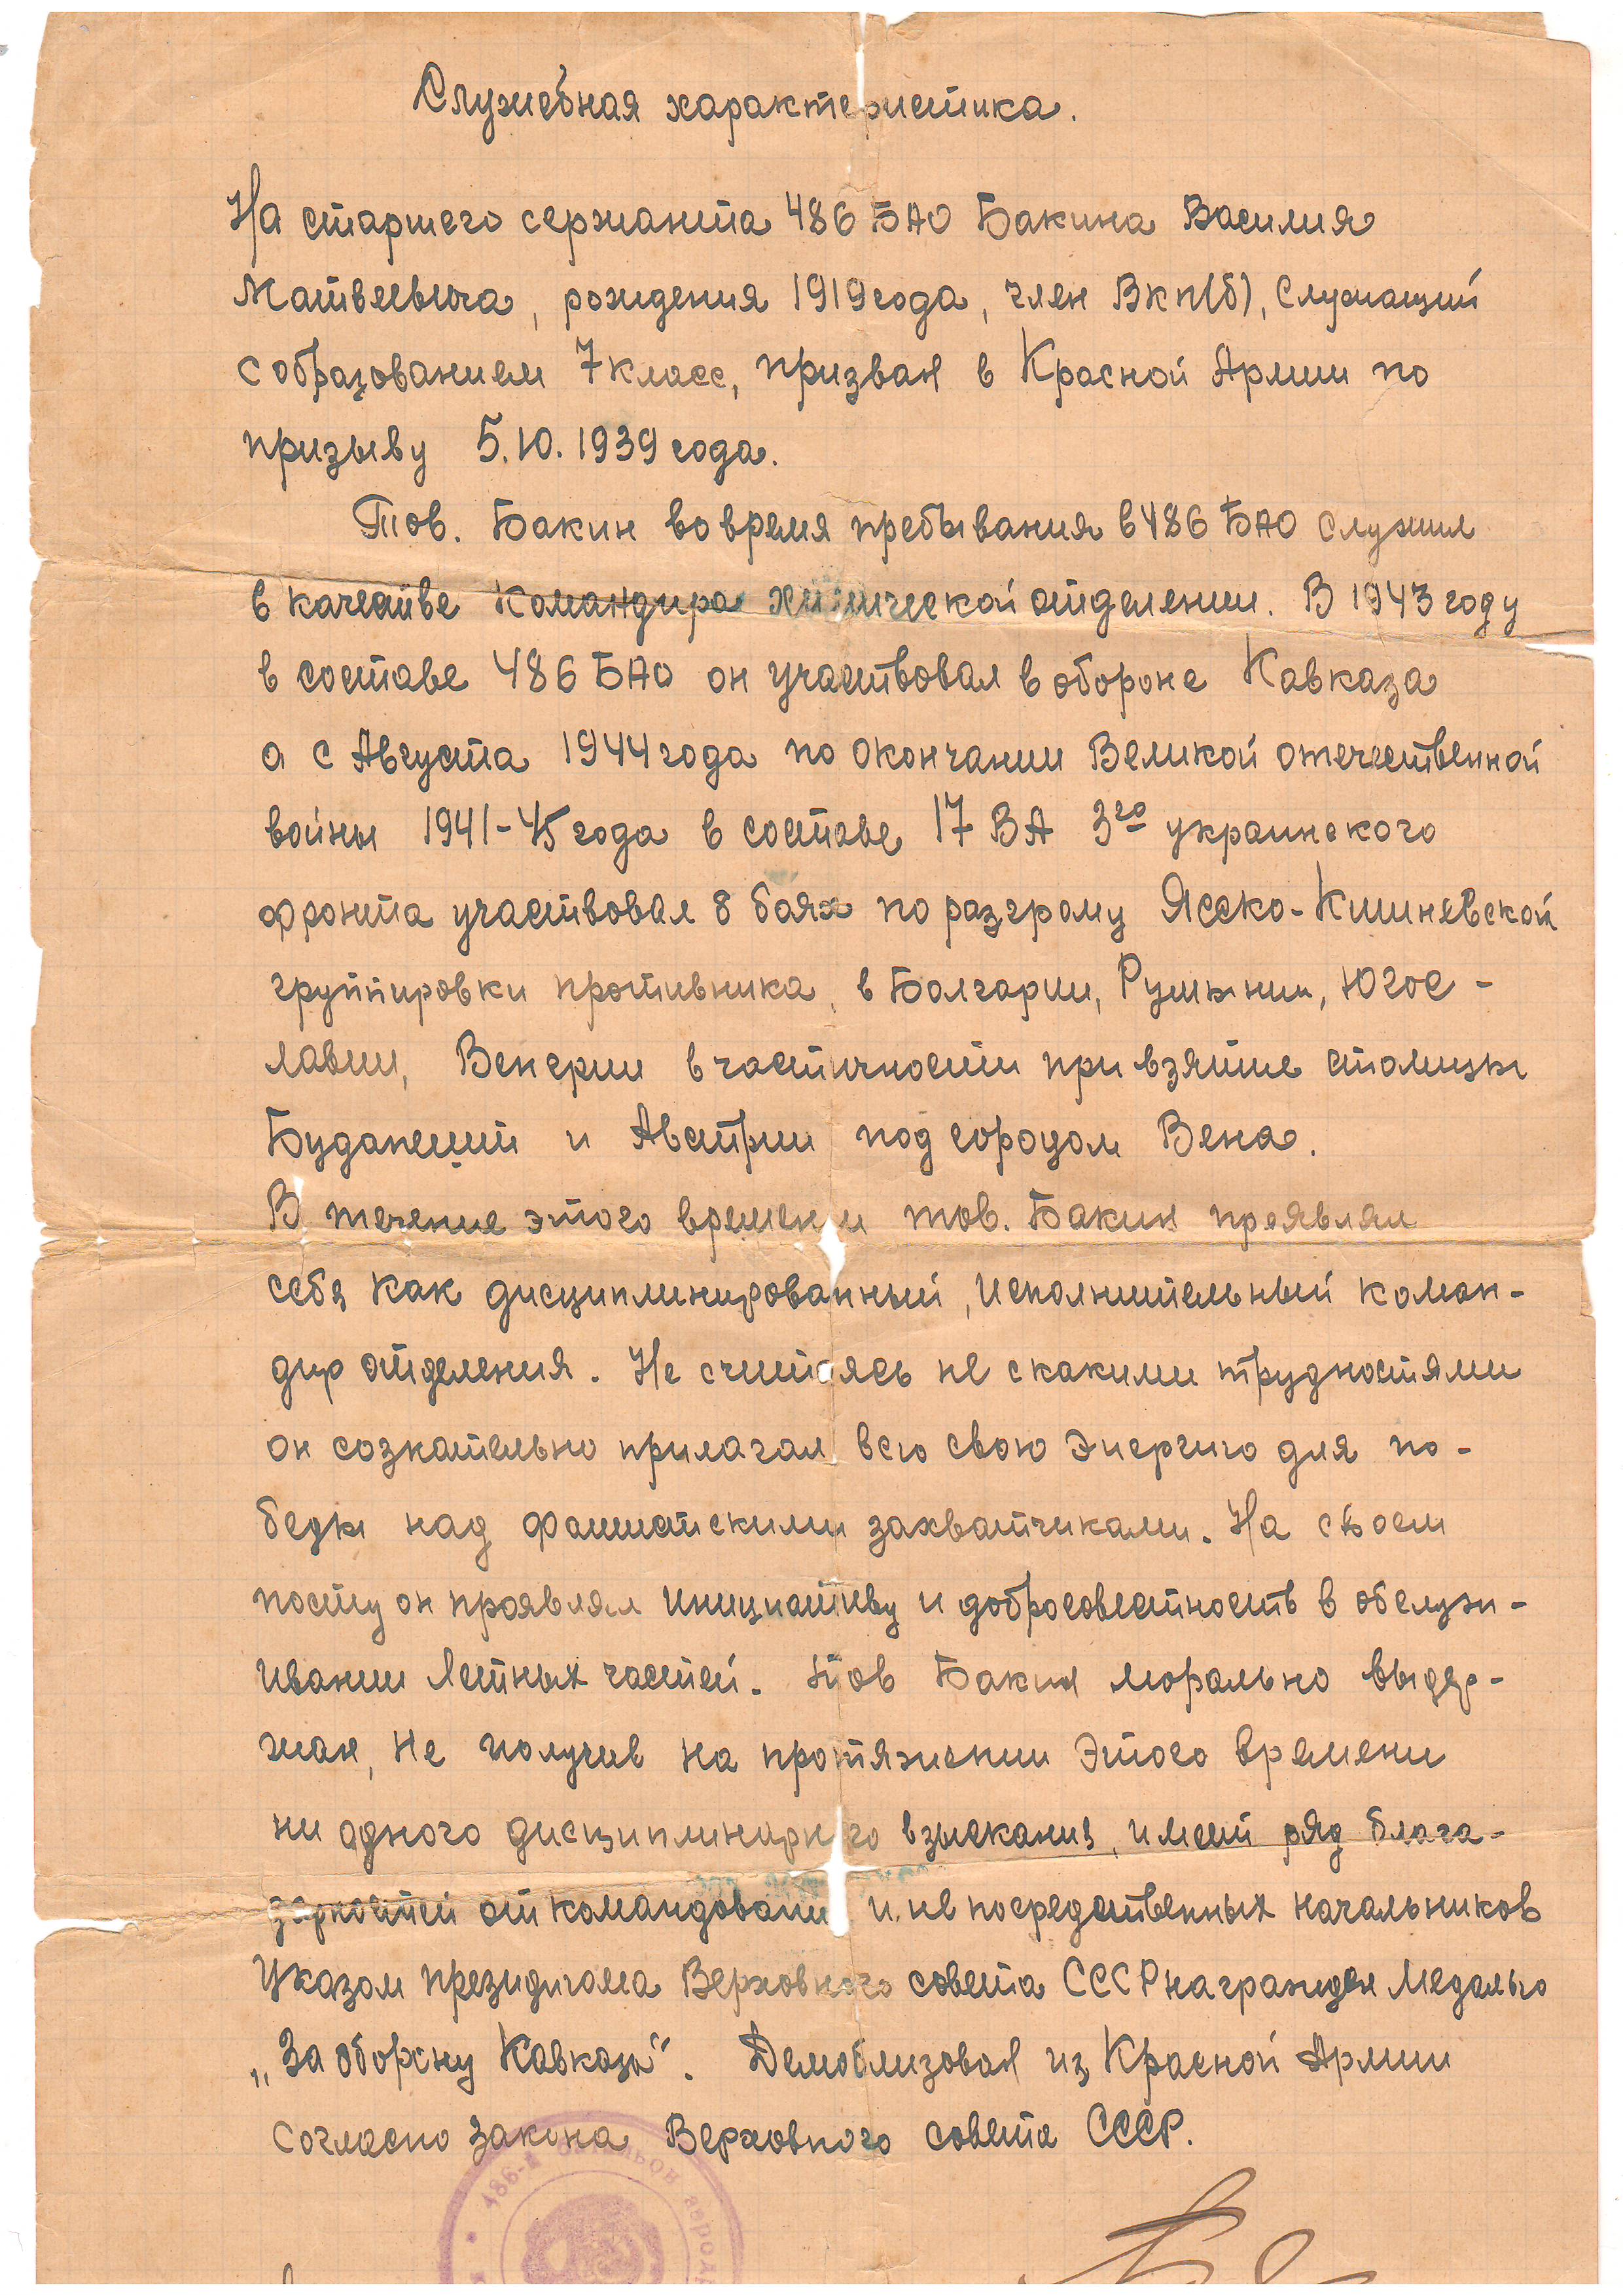 Служебная характеристика.
На старшего сержанта 486 БАО Бакина Василия
Матвеевича, рождения 1919 года, член Вкп(б), Служащий
с образованием 7 класс, призван в Красной Армии по
призыву 5.10.1939 года.
Тов. Бакин во время пребывания в 486 БАО служил
в качестве Командира химической отделении. В 1943 году
в составе 486 БАО он участвовал в обороне Кавказа
а с Августа 1944 года по окончании Великой отечественной
войны 1941-45 года в составе 17 ВА 3го украинского
фронта участвовал в боях по разгрому Ясско-Кишиневской
группировки противника, в Болгарии, Румынии, Югос-
лавии, Венгрии в частичности при взятие столицы
Будапешт и Австрии под городом Вена.
В течение этого времени тов. Бакин проявлял
себя как дисциплинированный, исполнительный коман-
дир отделения. Не считаясь не с какими трудностями
он сознательно прилагал всю свою Энергию для по-
беды над фашистскими захватчиками. На своем
посту он проявлял инициативу и добросовестность в обслуж-
ивании Летных частей. Тов Бакин морально выдер-
жан, Не получив на протяжении Этого времени
ни одного дисциплинарного взыскания, имеет ряд блага-
дарностей от командовании и не посредственных начальников
Указом президиума Верховного совета СССР награжден Медалью
„За оборону Кавказа". Демоблизован из Красной Армии
Согласно Закона Верховного совета СССР.
486-й